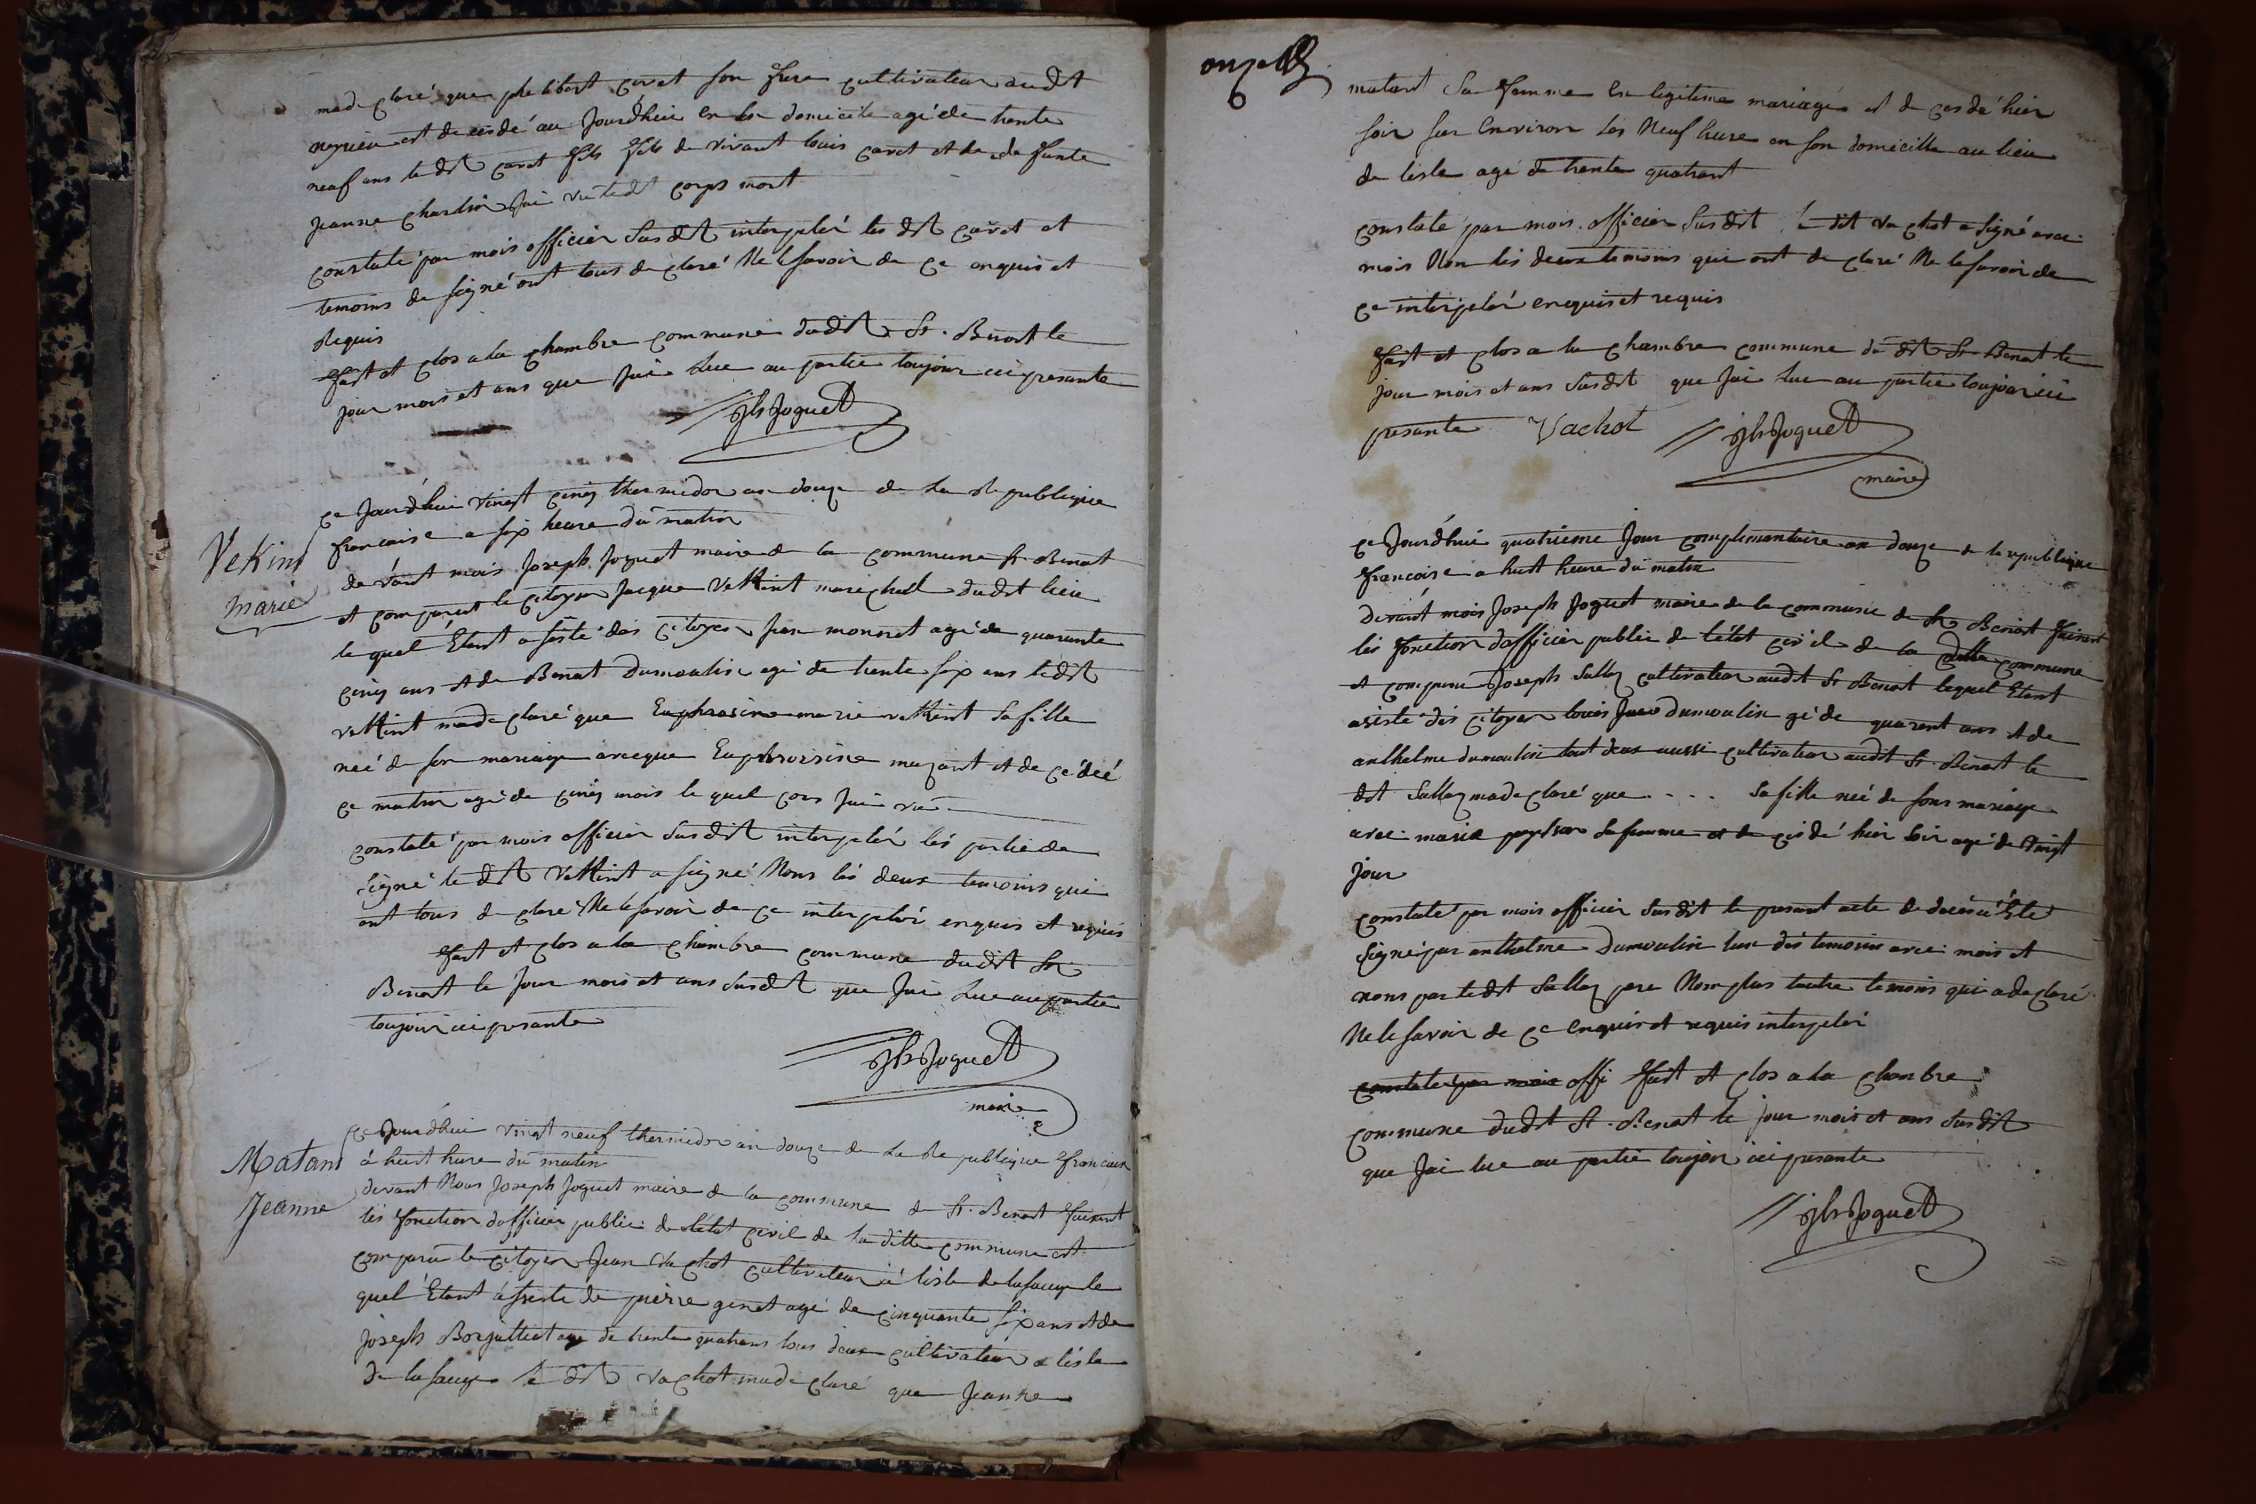 ma de claré que phelibert caret son frere cultivateur au dit
est de cédé au Jourdhui en son domicile agé de trente
neuf ans le dit caret fils de vivant louis caret et de de funte
jeanne chardin jai vu le dit corps mort
constaté par mois officier Sus dit interpelér les dit caret et
temoins de signé ont tous de claré Ne le savoir de ce enquis et
Requis
fait et clos a la chambre commune du dit St. Benoit le
jour mois et ans que jai lue au partie toujour ici presante
Jh Joguet
ce jourdhui vingt cinq thermidor an douze de la Republique
francaise a six heure du matin
Vekint
marie
de vant mois joseph joguet maire de la commune St Benoit
et comparut le citoyen jacque Vekint marechall dudit lieu
le quel Etant assisté des citoyen jean monnet agé de quarante
cinq ans et de Benoit Dumoulin agé de trente six ans le dit
vekint ma de claré que Euphrosine marie vekint sa fille
neé de son mariage avecque Euphroisine et de cédeé
ce matin agé de cinq mois le quel cors jai vu
constaté par mois officier sus dit interpelér lés partie de
signé le dit Vekint a signé Nons lés deux temoins qui
ont tous de claré Ne le savoir de ce interpelér enquis et requis
fait et clos a la chambre commune du dit St
Benoit le jour mois et ans susdit que jai lue au partie
toujour ici presante
Jh Joguet
maire
Matant
Jeanne
ce jourdhui vingt neuf thermidor an douze de la Re publique francaise
à huit hure du matin
devant Nous joseph joguet maire de la commune de St. Benoit faisant
lés fonction dofficier public de létat civil de la ditte commune est
comparu le citoyen jean Vachot cultivateur a lisle de la sauge le
quel Etant assisté de pierre genet agé de cinquante six ans et de
joseph Borjalliot agé de trente quatrans tous deux cultivateur a lisle
de la sauge le dit vachot ma de claré que jeanne
onze
matant sa famme en legitime mariage est de cedé hier
soir sur Environ les Neuf hure en son domicille au lieu
de lisle agé de trente quatrant
constaté par mois officier sus dit le dit vachot a signé avec
mois Non lés deux temoins qui ont de claré Ne le savoir de
ce interpelér enquis et requis
fait et clos a la chambre commune du dit St Benoit le
jour mois et ans susdit que jai lue au partie toujour ici
presante Vachot Jh Joguet
maire
ce jourdhui quatrieme jour complementaire an douze de la republique
francoise a huit heure du matin
devant mois joseph joguet maire de la commune de St Benoit faisant
lés fonction dofficier public de létat civil de la ditte commune
et comparu joseph Sallaz cultivateur au dit St Benoit lequel Etant
asisté dés citoyen louis Dumoulin gé de quarent ans et de
anthelme dumoulin tout deux aussi cultivateur au dit St. Benoit le
dit Sallaz ma de claré que . . . . sa fille neé de sons mariage
avec maria sa famme et de cédé hier soir agé de Vingt
jour
constaté par mois officier susdit le presant acte de decés a été
signé par anthelme Dumoulin lun dés temoins avec mois et
nons par le dit Sallaz pere Non plus lautre temoins qui a de claré
Ne le savoir de ce enquis et requis interpelér
constate par mois offi fait et clos a la chambre
commune du dit St. Benoit le jour mois et ans susdit
que jai lue au partie toujour ici presante
Jh Joguet